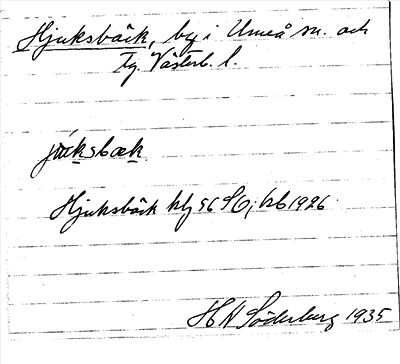 Hjuksbäck, by i Umeå sn. och
tg. Västerb. l.
Hjuksbäck kbl 56 SO; kb 1926
H H Söderberg 1935